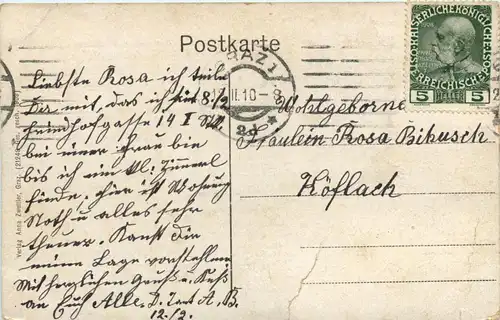 Postkarte
K.K. ÖSTERREICHISCHE
5 HELLER 5
GRAZ 1
II.10-8
2d
Liebste Rosa ich teile
Dir mit, das ich seit 8/2
Friedhofgasse 14 I Stk.
bei einer Frau bin
bis ich ein kl. Zimerl
finde, hier ist Wohnung
Noth u alles sehr
theuer. Kanst Dir
meine Lage vorstellen
Mit herzlichen Gruß u. Kuß
an Euch Alle. D. Tant A. B.
12./2.
Wohlgeborne
Fräulein Rosa Bihusch
Köflach
Verlag Anna Zwettler, Graz.